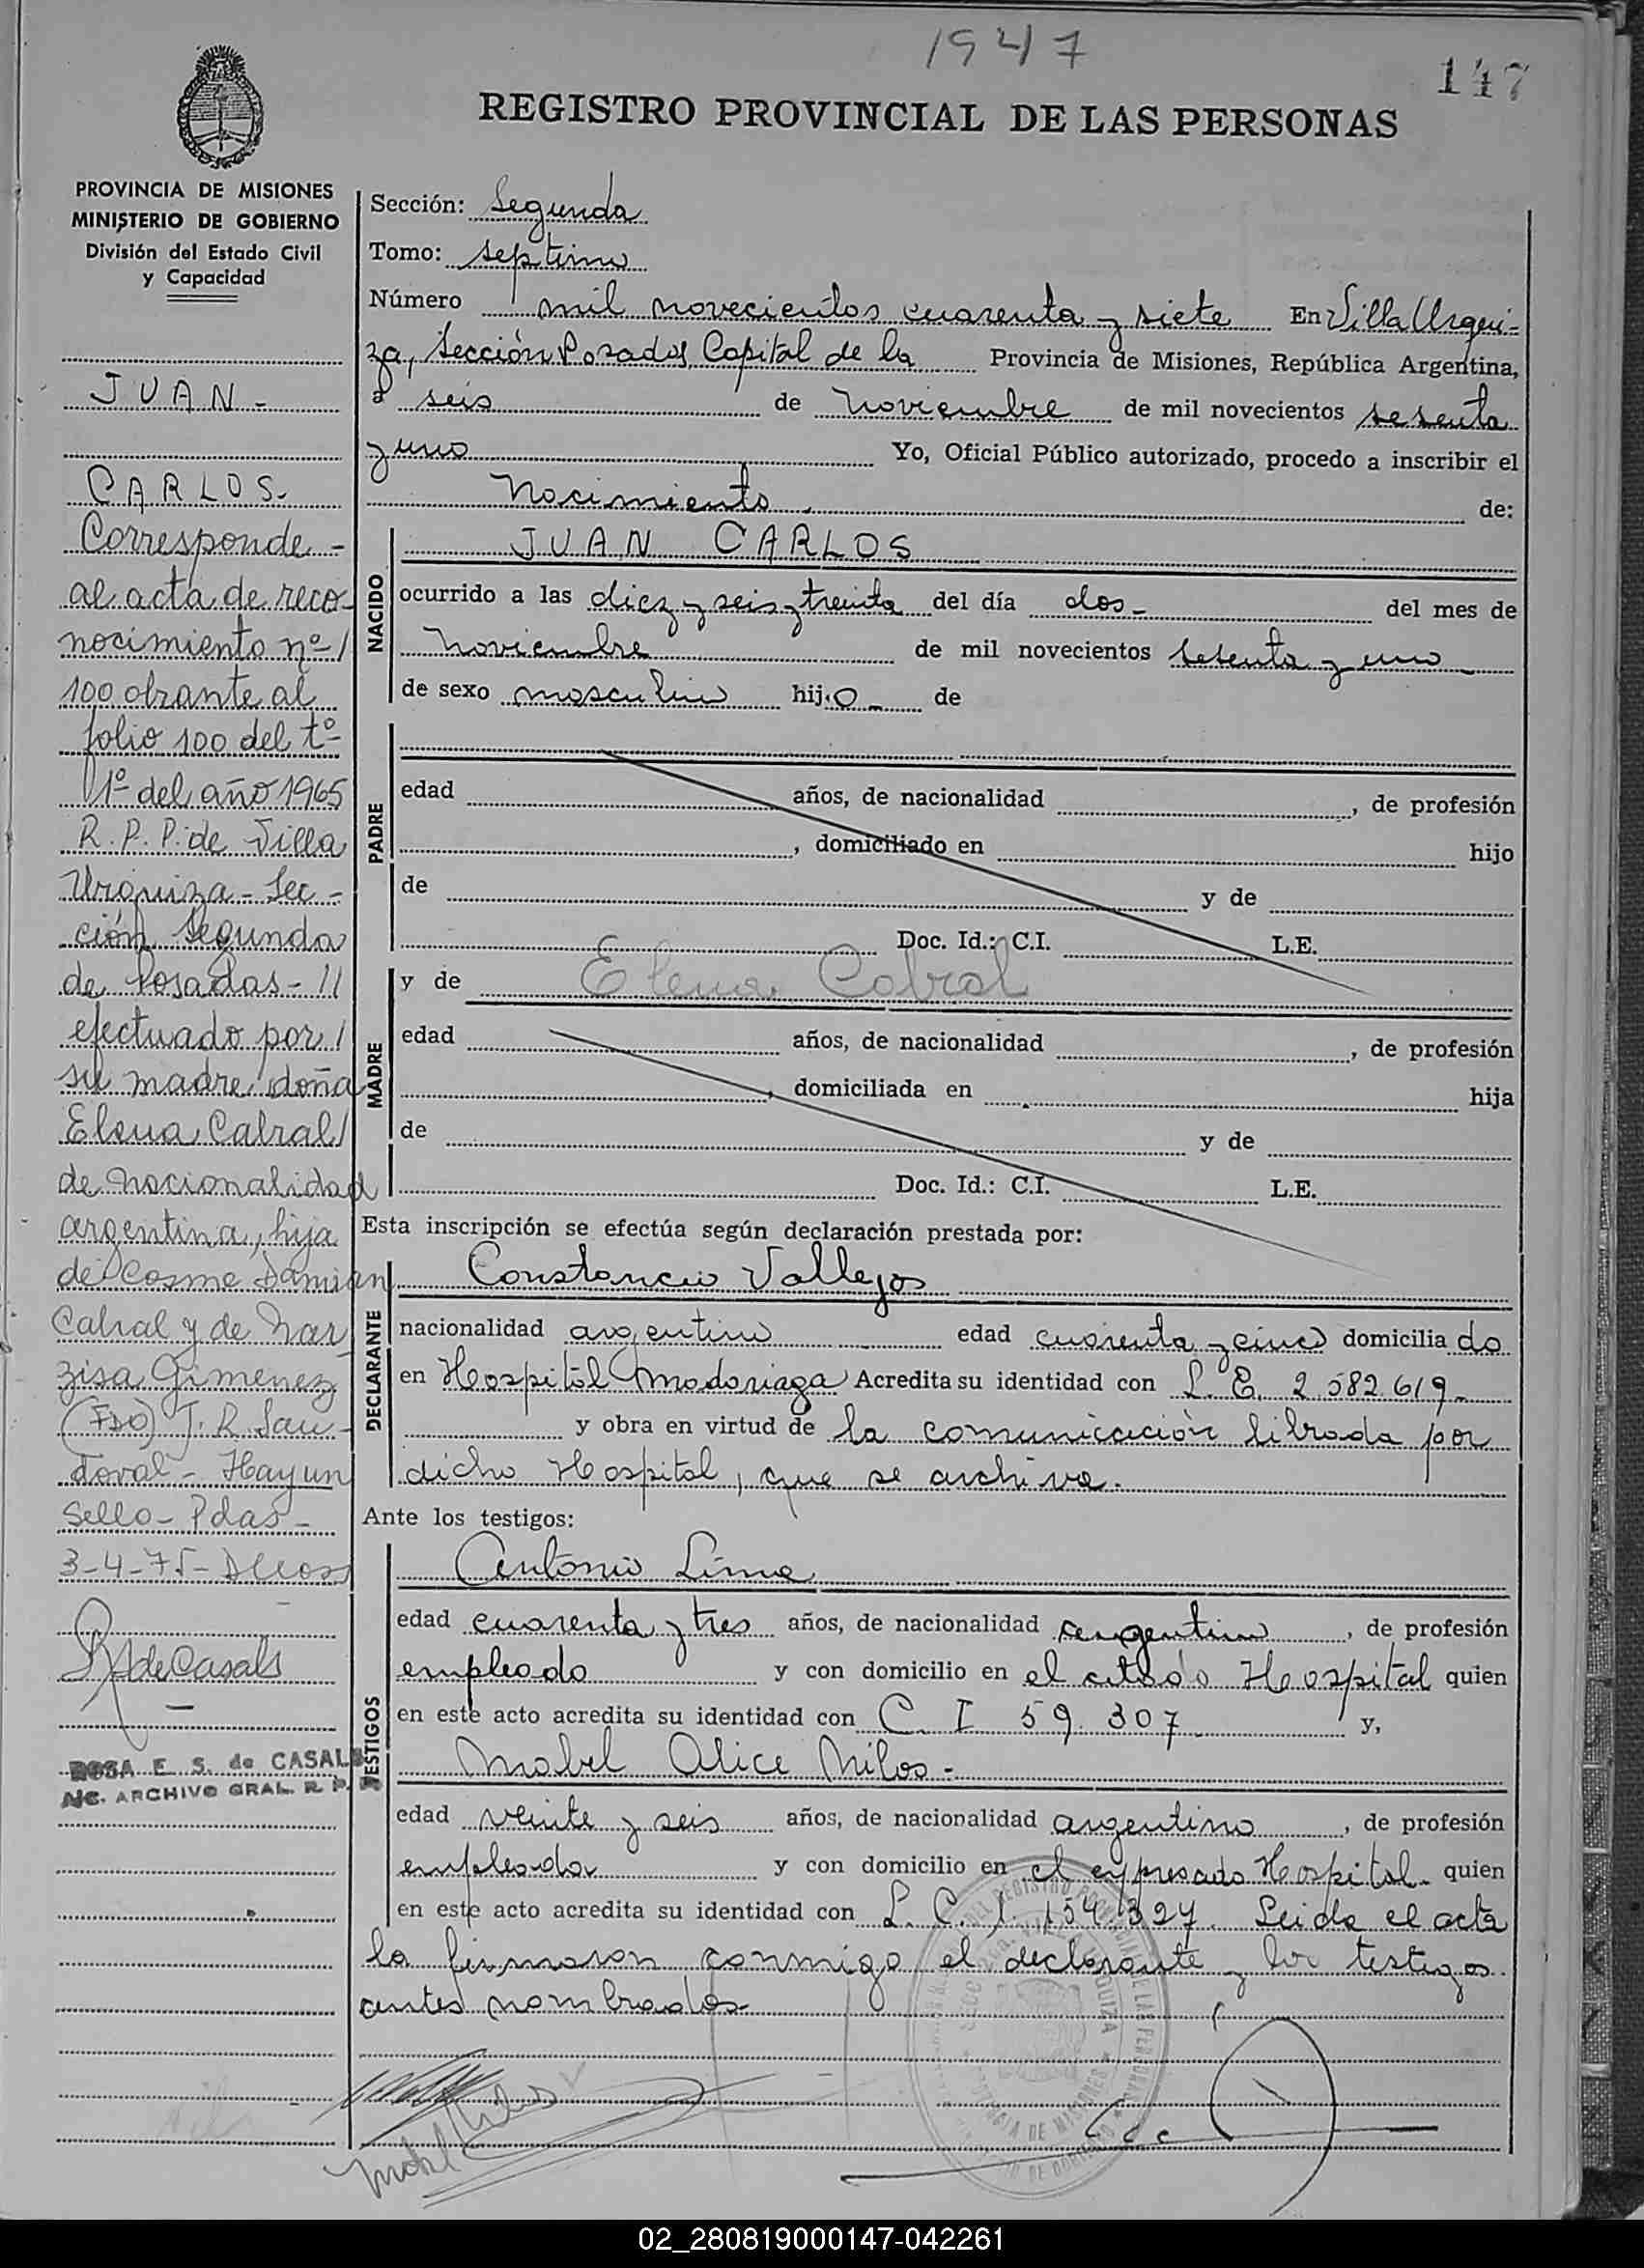 1947
147
REGISTRO PROVINCIAL DE LAS PERSONAS
PROVINCIA DE MISIONES
MINISTERIO DE GOBIERNO
División del Estado Civil
y Capacidad
JUAN -
CARLOS.-
Corresponde -
al acta de reco-
nocimiento nº /
100 obrante al
folio 100 del tº
1º del año 1965
R. P. P. de Villa
Urquiza - Sec -
ción Segunda
de Posadas - //
efectuado por /
su madre doña
Elena Cabral /
de nacionalidad
argentina, hija
de Cosme Damian
Cabral y de Nar
zisa Gimenez
(FDO) J. R. San-
doval - Hay un
Sello - Pdas -
3-4-75 -
RS de Casals
ROSA E. S. de CASALS
ARCHIVO GRAL. R. P. P.
Sección: Segunda
Tomo: septimo
Número mil novecientos cuarenta y siete En Villa Urqui-
za, Sección Posadas, Capital de la Provincia de Misiones, República Argentina,
a seis de noviembre de mil novecientos sesenta
y uno Yo, Oficial Público autorizado, procedo a inscribir el
Nacimiento de:
NACIDO
JUAN CARLOS
ocurrido a las diez y seis y treinta del día dos- del mes de
noviembre de mil novecientos sesenta y uno
de sexo masculino hijo de
PADRE
edad años, de nacionalidad , de profesión
, domiciliado en hijo
de y de
Doc. Id.: C.I. L.E.
MADRE
y de Elena Cabral
edad años, de nacionalidad , de profesión
, domiciliada en hija
de y de
Doc. Id.: C.I. L.E.
Esta inscripción se efectúa según declaración prestada por:
DECLARANTE
Constancio Vallejos
nacionalidad argentino edad cuarenta y cinco domicilia do
en Hospital Madariaga Acredita su identidad con L. E. 2.582.619-
y obra en virtud de la comunicación librada por
dicho Hospital, que se archiva.
Ante los testigos:
TESTIGOS
Antonio Lima
edad cuarenta y tres años, de nacionalidad argentino , de profesión
empleado y con domicilio en el citado Hospital quien
en este acto acredita su identidad con C. I 59.307 y,
Mabel Alice Milos-
edad veinte y seis años, de nacionalidad argentina , de profesión
empleada y con domicilio en el expresado Hospital- quien
en este acto acredita su identidad con L. C. 1.154.327. Leida el acta
la firmaron conmigo el declarante y los testigos
antes nombrados
Mabel Milos
02_280819000147-042261